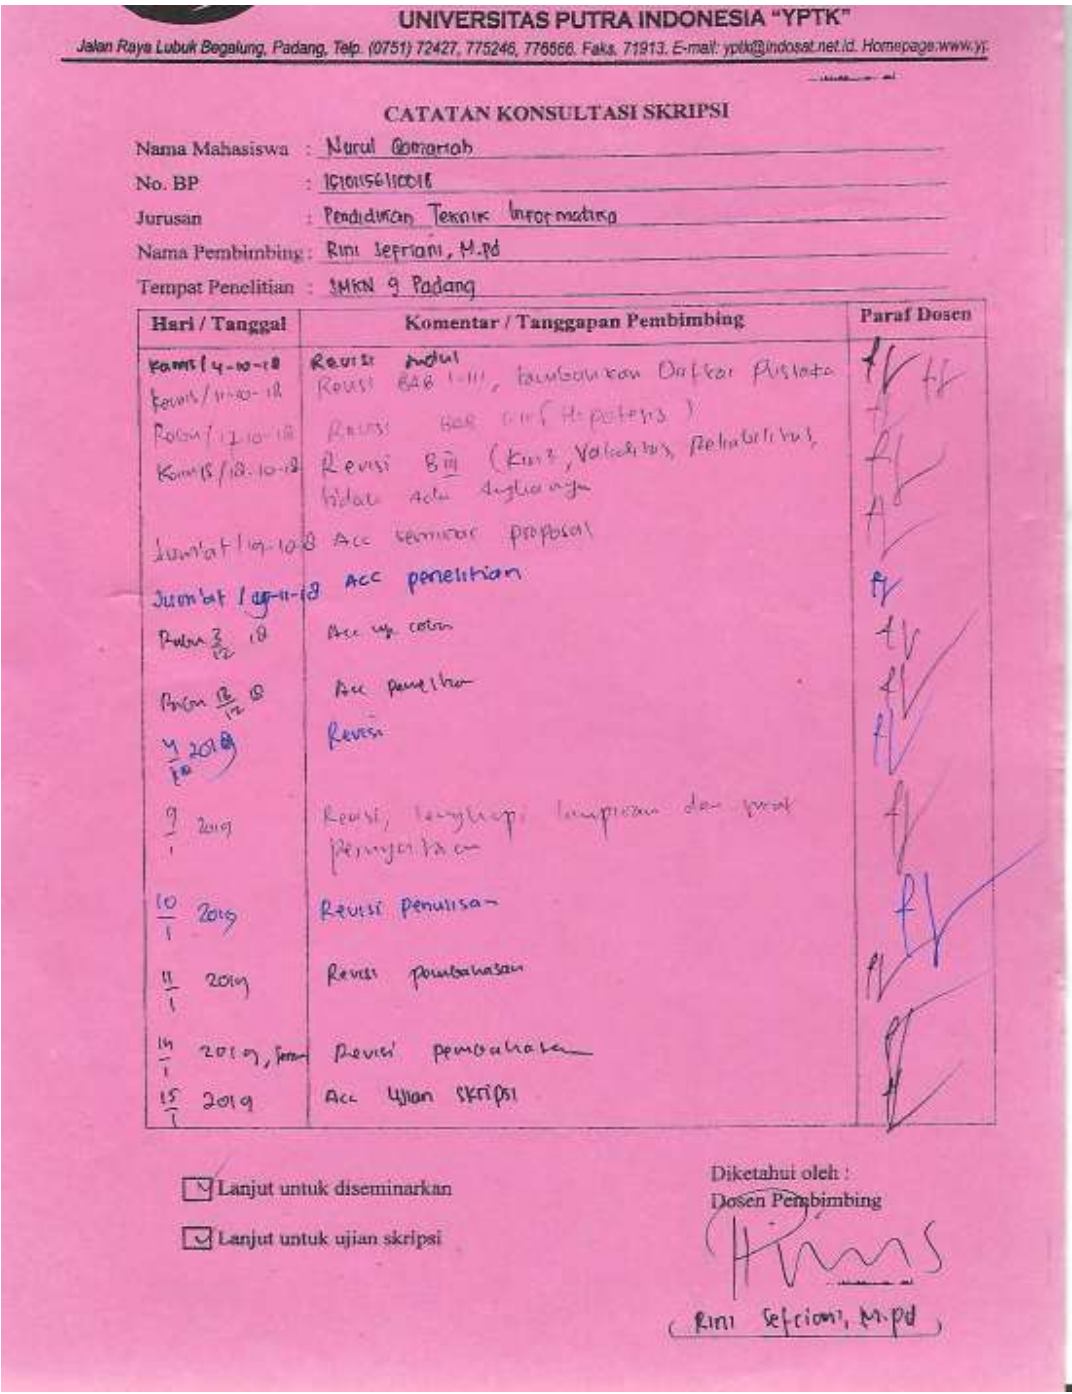 UNIVERSITAS PUTRA INDONESIA "YPTK"
Jalan Raya Lubuk Begalung, Padang, Telp. (0751) 72427, 775246, 776666. Faks. 71913. E-mail: yptk@indosat.net.id. Homepage:www.yp
CATATAN KONSULTASI SKRIPSI
Nama Mahasiswa : Nurul Qomariah
No. BP : 15101156110018
Jurusan : Pendidikan Teknik Informatika
Nama Pembimbing : Rini Sefriani, M.Pd
Tempat Penelitian : SMKN 9 Padang
Hari / Tanggal Komentar / Tanggapan Pembimbing Paraf Dosen
Kamis / 4-10-18 Revisi Judul
Kamis / 11-10-18 Revisi BAB I-III, tambahkan Daftar Pustaka
Rabu / 17-10-18 Revisi BAB (Hipotesis)
Kamis / 18-10-18 Revisi B III (Kuis, Validitas, Reliabilitas,
tidak ada
Jum'at / 19-10-18 Acc seminar proposal
Jum'at / -11-18 ACC penelitian
Rabu 12 18 Acc uji coba
12 18 Acc penelitian
4 2019 Revisi
9/1 2019 Revisi, lengkapi lampiran dan surat
pernyataan
10/1 2019 Revisi penulisan
11/1 2019 Revisi pembahasan
14/1 2019, Senin Revisi pembahasan
15/1 2019 Acc Ujian skripsi
Lanjut untuk diseminarkan
Lanjut untuk ujian skripsi
Diketahui oleh :
Dosen Pembimbing
(Rini Sefriani, M.Pd)